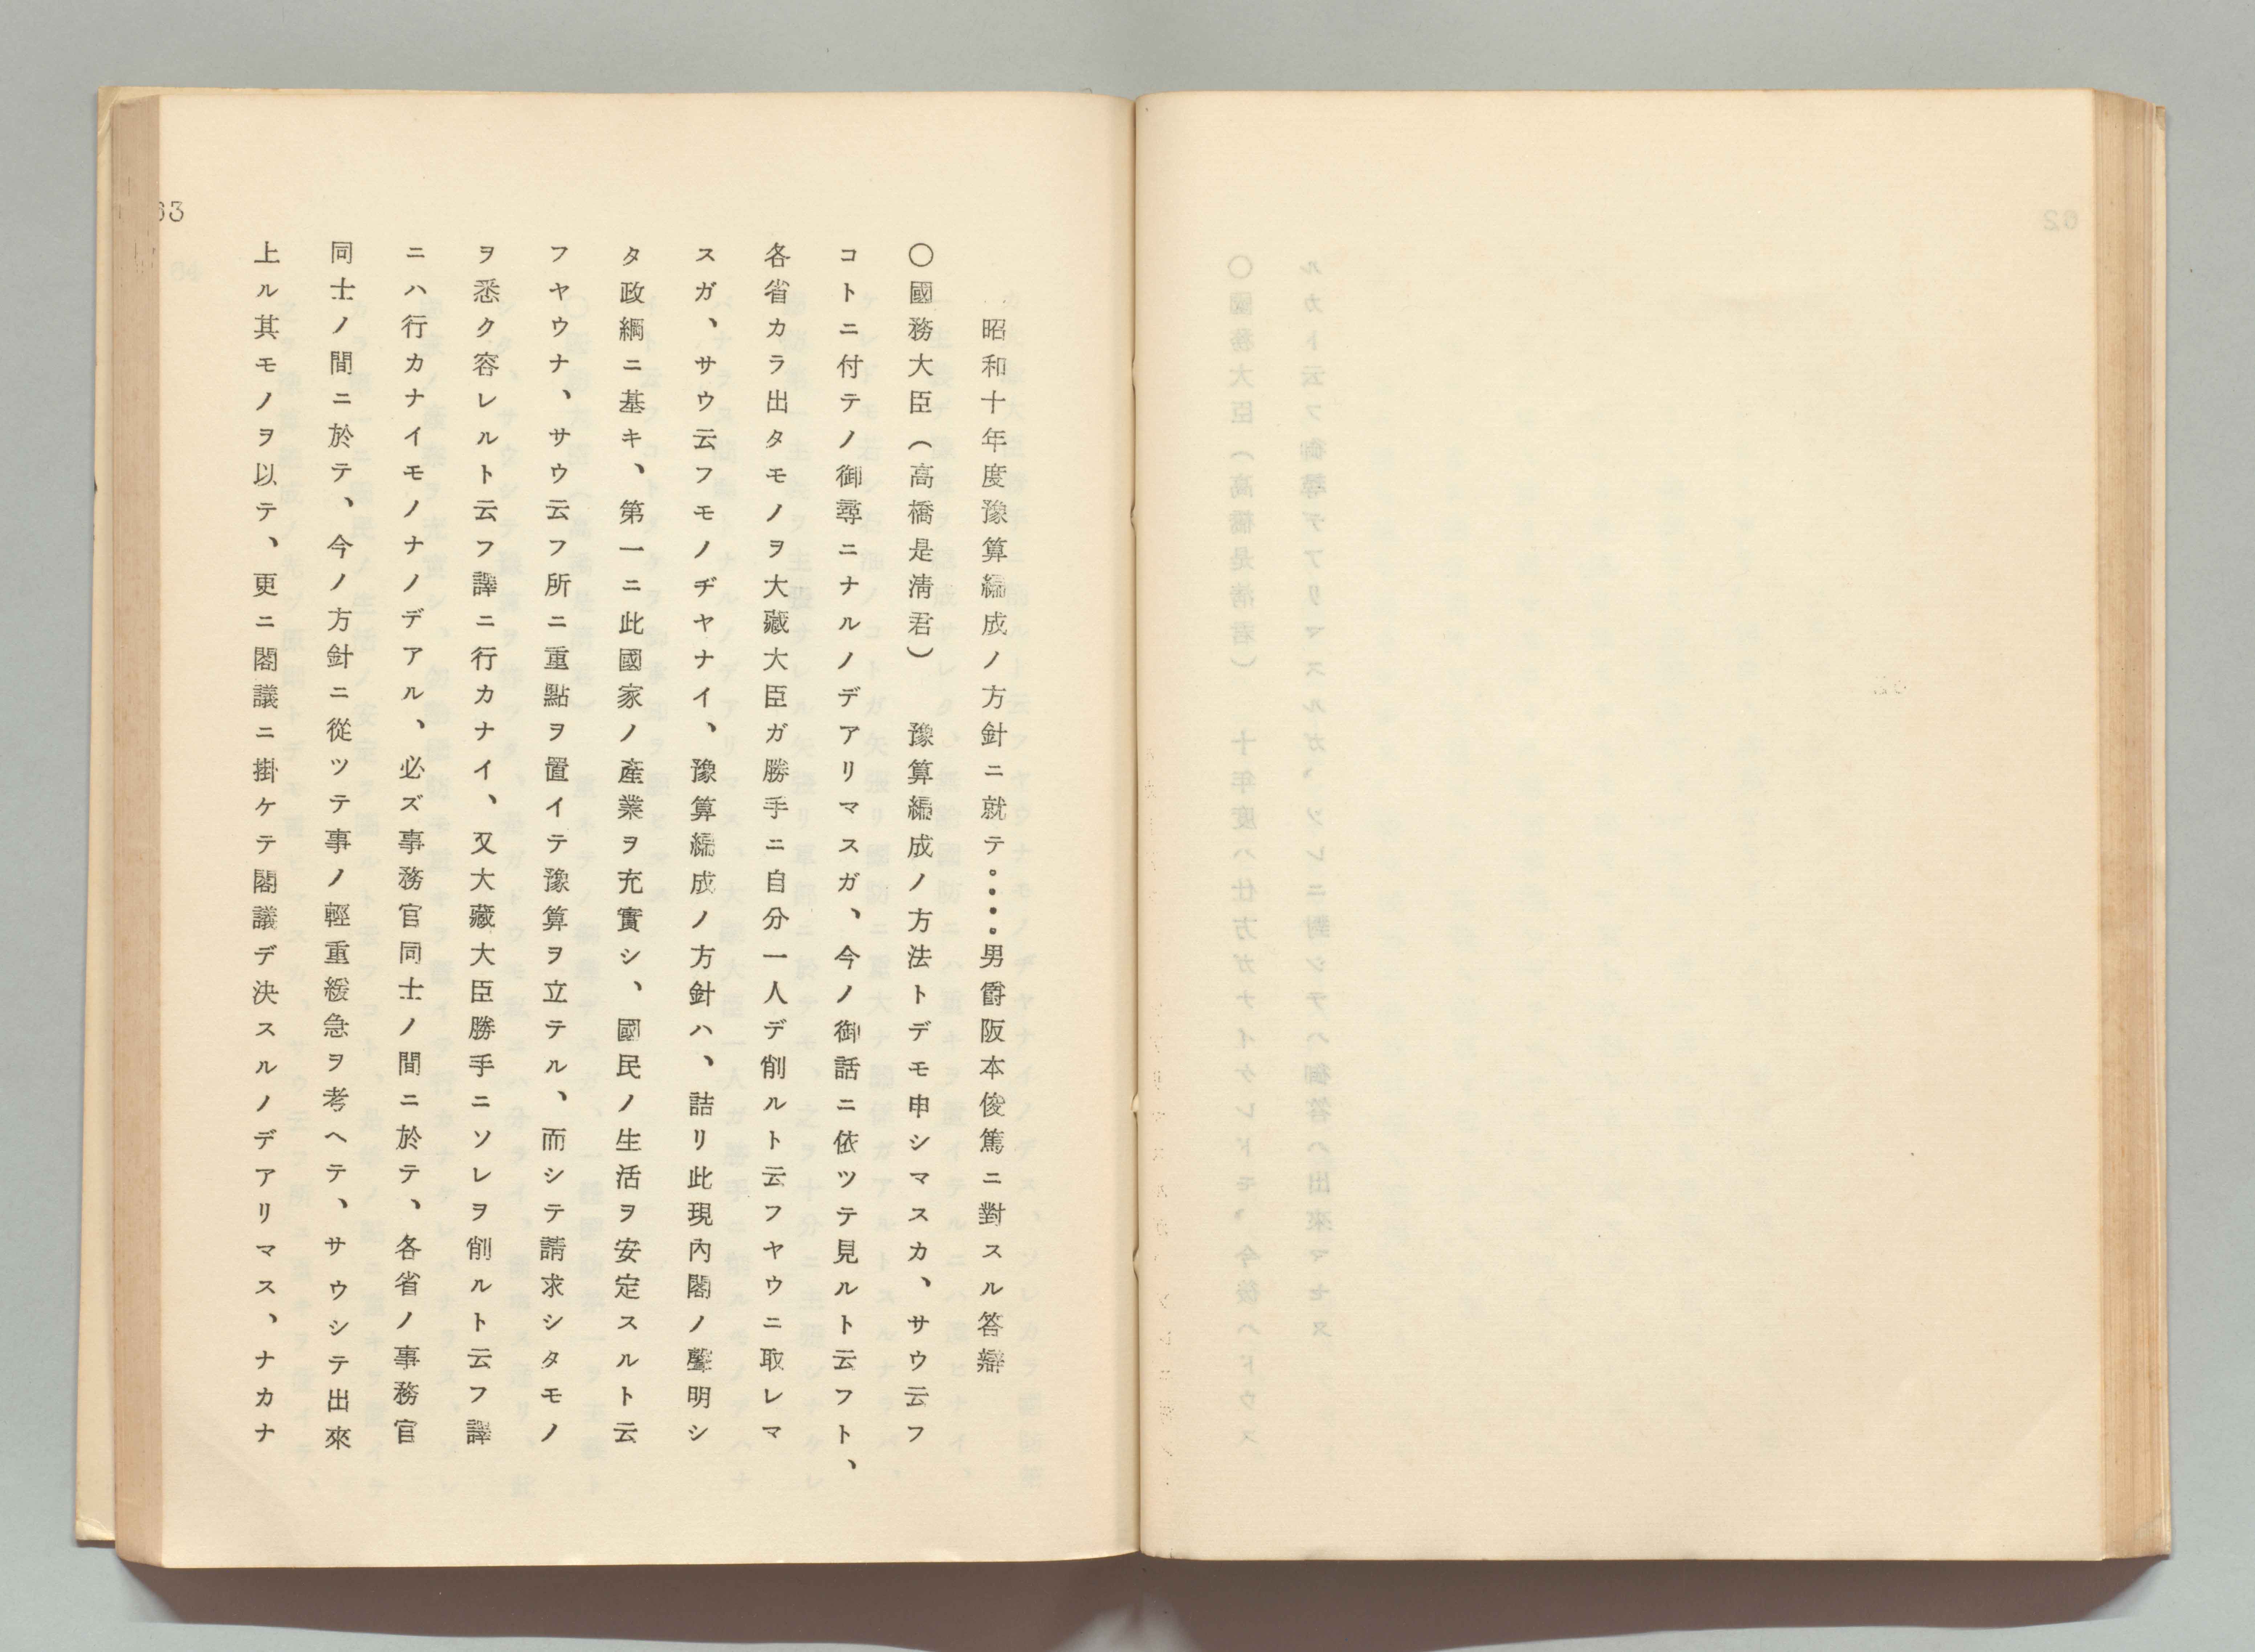 昭和十年度豫算編成ノ方針ニ就テ。・・。男爵阪本俊篤ニ對スル答辯
〇國務大臣（高橋是淸君）　豫算編成ノ方法トデモ申シマスカ、サウ云フ
コトニ付テノ御尋ニナルノデアリマスガ、今ノ御話ニ依ツテ見ルト云フト、
各省カラ出タモノヲ大藏大臣ガ勝手ニ自分一人デ削ルト云フヤウニ取レマ
スガ、サウ云フモノヂヤナイ、豫算編成ノ方針ハ、詰リ此現內閣ノ聲明シ
タ政綱ニ基キ、第一ニ此國家ノ產業ヲ充實シ、國民ノ生活ヲ安定スルト云
フヤウナ、サウ云フ所ニ重點ヲ置イテ豫算ヲ立テル、而シテ請求シタモノ
ヲ悉ク容レルト云フ譯ニ行カナイ、又大藏大臣勝手ニソレヲ削ルト云フ譯
ニハ行カナイモノナノデアル、必ズ事務官同士ノ間ニ於テ、各省ノ事務官
同士ノ間ニ於テ、今ノ方針ニ從ツテ事ノ輕重緩急ヲ考ヘテ、サウシテ出來
上ル其モノヲ以テ、更ニ閣議ニ掛ケテ閣議デ決スルノデアリマス、ナカナ
63